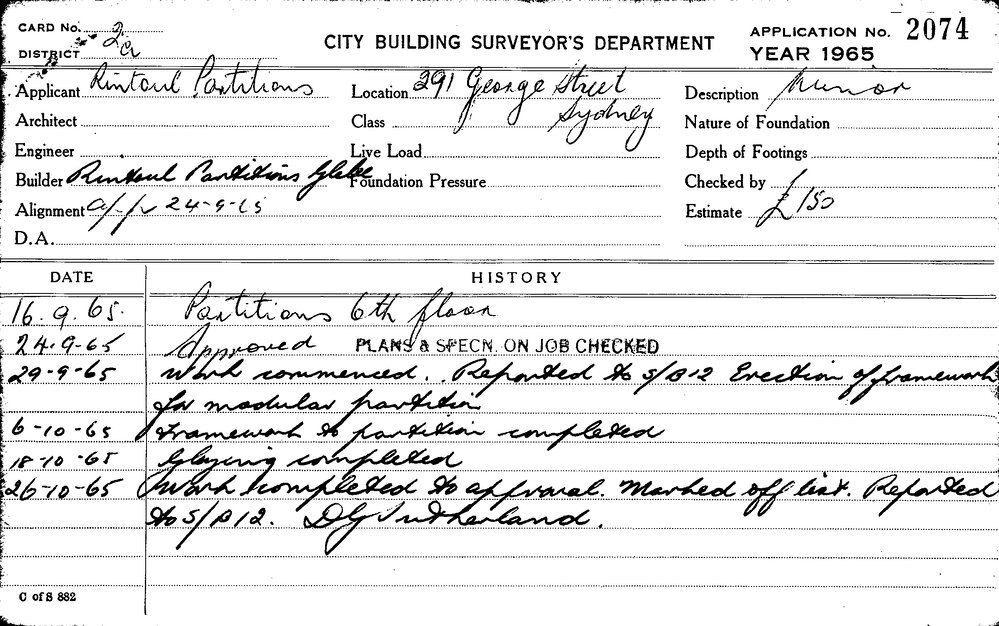 CARD No. 2a
DISTRICT
CITY BUILDING SURVEYOR'S DEPARTMENT
APPLICATION No. 2074
YEAR 1965
Applicant Rintoul Partitions
Location 291 George Street
Sydney
Description Minor
Architect
Class
Nature of Foundation
Engineer
Live Load
Depth of Footings
Builder Rintoul Partitions Glebe
Foundation Pressure
Checked by
Alignment app 24-9-65
Estimate £150
D.A.
DATE HISTORY
16.9.65. Partitions 6th floor
24.9-65 Approved PLANS & SPECN. ON JOB CHECKED
29-9-65 Work commenced. Reported to S/B12 Erection of framework
for modular partition
6-10-65 Framework to partition completed
18-10-65 Glazing completed
26-10-65 Work completed to approval. Marked off list. Reported
to S/B12. DG Sutherland.
C of S 882